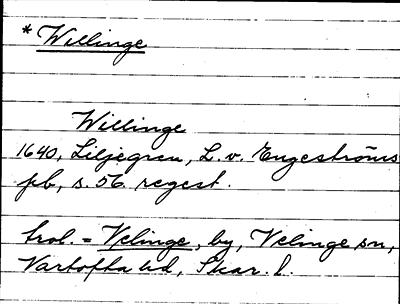 * Willinge
Willinge
1640, Liljegren, L. v. Engeströms
pb, s. 56. regest.
trol. = Velinge, by, Velinge sn,
Vartofta hd, Skar. l.